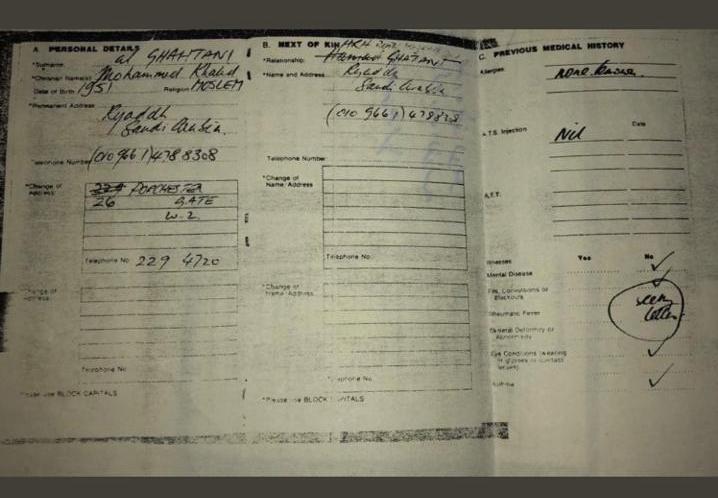 A PERSONAL DETAILS
*Surname: al GHAHTANI
*Christian Name(s) Mohammed Khalid
Date of Birth 1951 Religion MOSLEM
*Permanent Address
Ryaddh
Saudi Arabia.
Telephone Number (010 966 1) 478 8308
*Change of
Address
229 PORCHESTER
26 GATE
W-2.
Telephone No 229 4720
*Change of
Address
Telephone No
*Please use BLOCK CAPITALS
B. NEXT OF KIN
*Relationship:
*Name and Address Ryaddh
Saudi Arabia
Telephone Number
*Change of
Name/Address
Telephone No
*Change of
Name/Address
Telephone No
*Please use BLOCK CAPITALS
C. PREVIOUS MEDICAL HISTORY
Allergies none known
A.T.S. Injection Nil Date
Illnesses Yes No
Mental Disease
Fits, Convulsions or
Blackouts
Rheumatic Fever
General Deformity or
Abnormality
Eye Conditions (wearing
of glasses or contact
lenses)
Asthma
letter